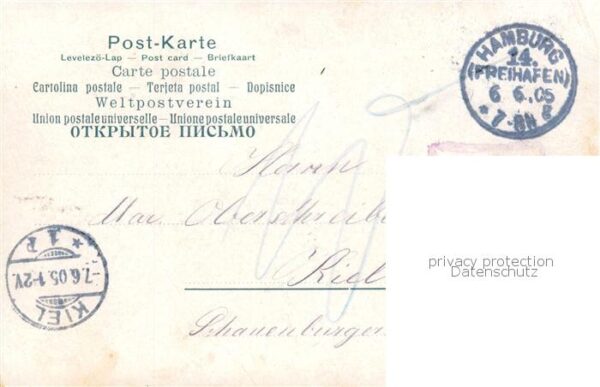 Post-Karte
Levelezö-Lap — Post card — Briefkaart
Carte postale
Cartolina postale — Terjeta postal — Dopisnice
Weltpostverein
Union postale universelle - Unione postale universale
ОТКРЫТОЕ ПИСЬМО
HAMBURG
14.
(FREIHAFEN)
6 6.05
* 7-8N
Herrn
Max Oberschreibe
Kiel
Schauenburger
* 1 P
7.6.05.1-2V.
KIEL
privacy protection
Datenschutz